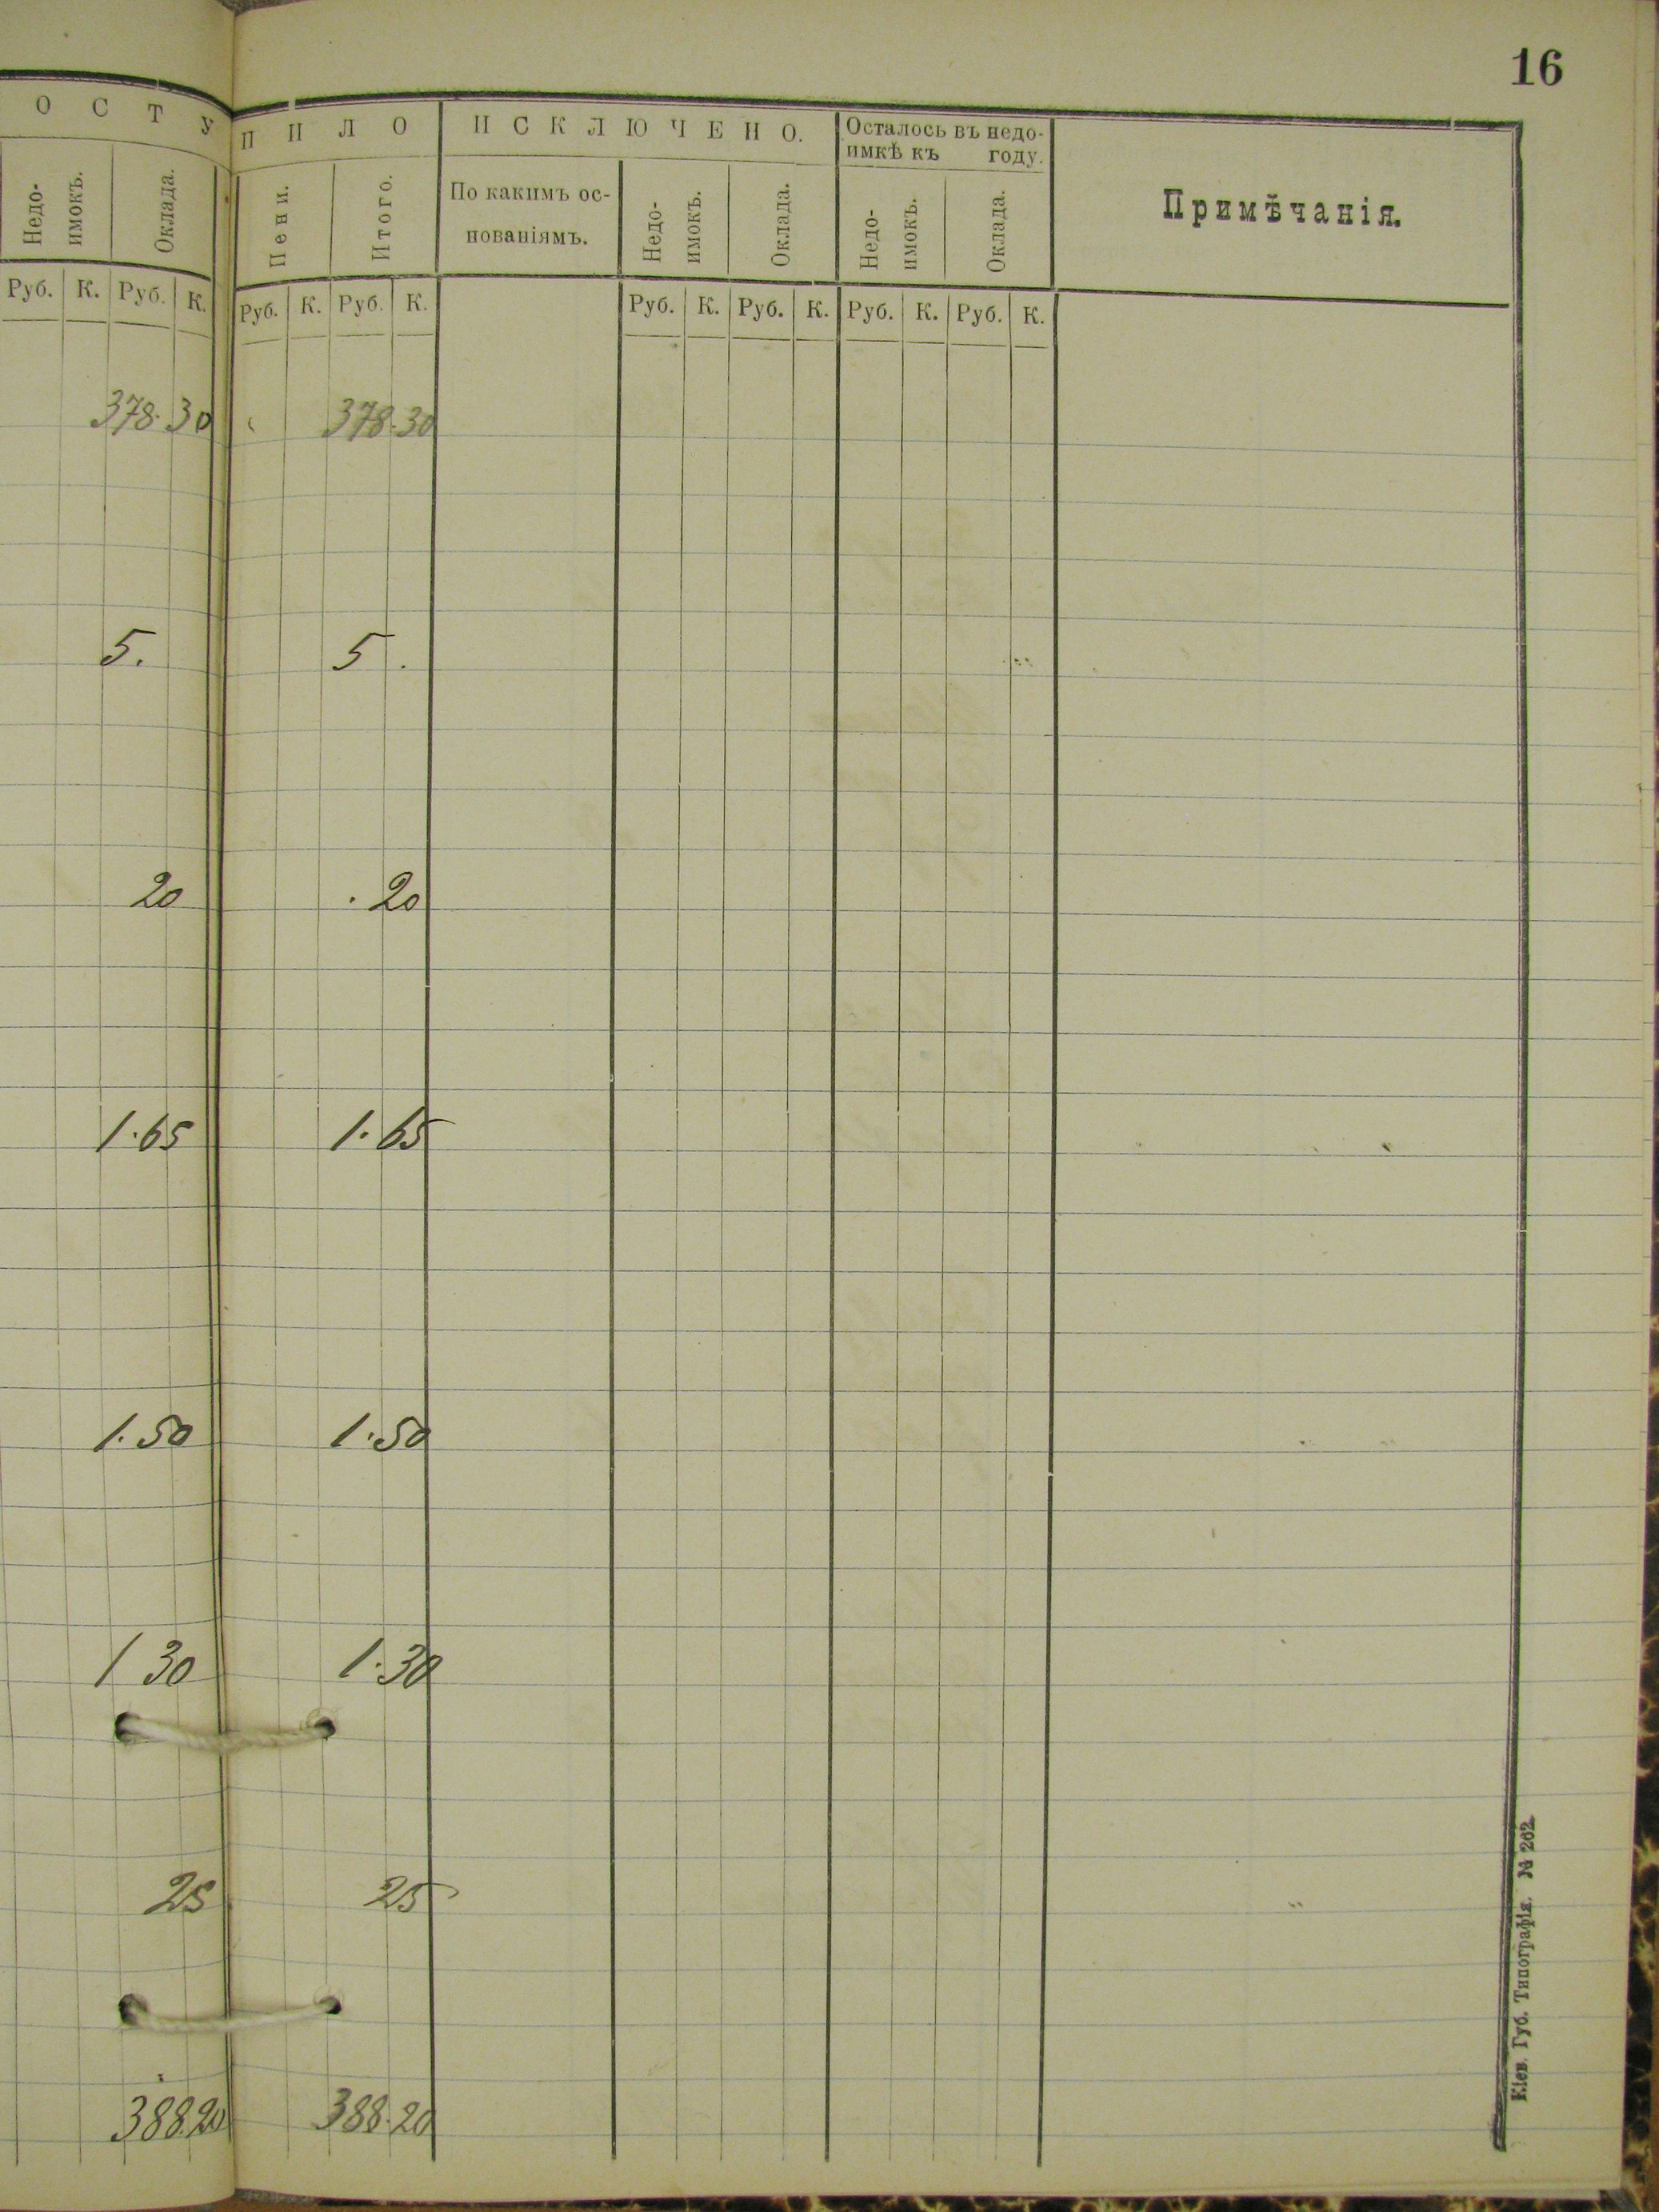 16
О С Т У П И Л О
И С К Л Ю Ч Е Н О.
Осталось въ недо-
имкѣ къ году.
Примѣчанія.
Недо-
имокъ.
Оклада.
Пени.
Итого.
По какимъ ос-
нованіямъ.
Недо-
имокъ.
Оклада.
Недо-
имокъ.
Оклада.
Руб. К. Руб. К. Руб. К. Руб. К. Руб. К. Руб. К. Руб. К. Руб. К.
378.30 378.30
5. 5.
20 . 20
1.65 1.65
1.50 1.50
1 30 1.30
25 25
388.20 388.20
Кіев. Губ. Типографія. № 262.